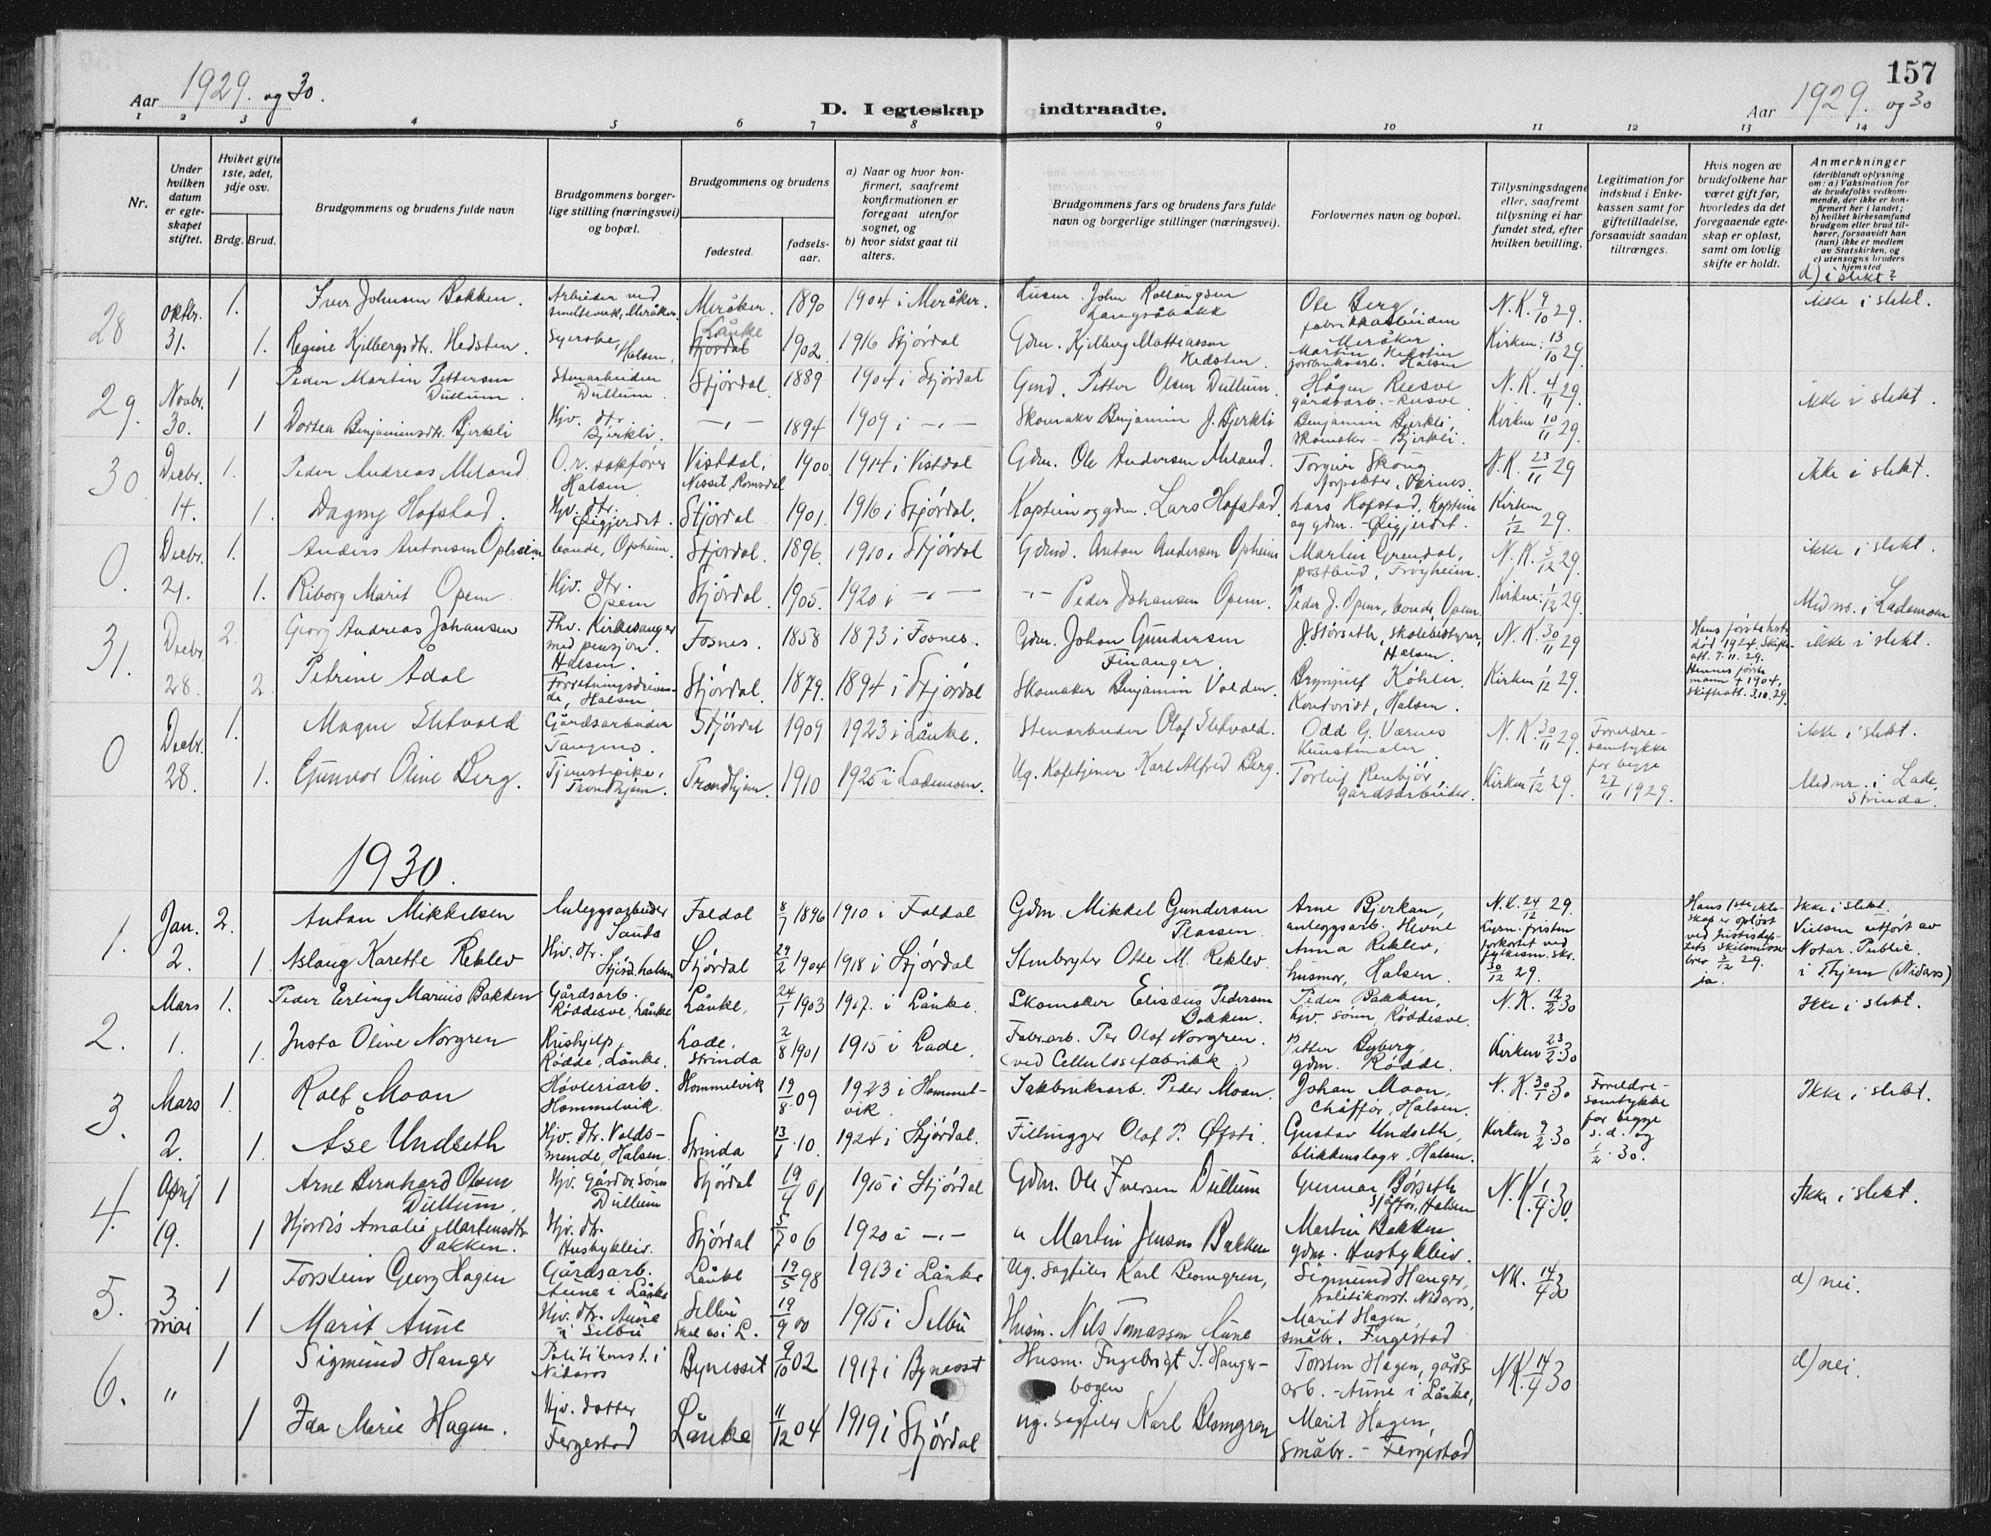 157
Aar 1929. og 30.
D. I egteskap indtraadte.
Aar 1929. og 30
1 2 3 4 5 6 7 8 9 10 11 12 13 14
Nr.
Under hvilken datum er egteskapet stiftet.
Hvilket gifte 1ste, 2det, 3dje osv.
Brdg. Brud.
Brudgommens og brudens fulde navn
Brudgommens borgerlige stilling (næringsvei) og bopæl.
Brudgommens og brudens
fødested.
fødselsaar.
a) Naar og hvor konfirmert, saafremt konfirmationen er foregaat utenfor sognet, og
b) hvor sidst gaat til alters.
Brudgommens fars og brudens fars fulde navn og borgerlige stillinger (næringsvei).
Forlovernes navn og bopæl.
Tillysningsdagene eller, saafremt tillysning ei har fundet sted, efter hvilken bevilling.
Legitimation for indskud i Enkekassen samt for giftetilladelse, forsaavidt saadan tiltrænges.
Hvis nogen av brudefolkene har været gift før, hvorledes da det foregaaende egteskap er opløst, samt om lovlig skifte er holdt.
Anmerkninger (deriblandt oplysning om: a) Vaksination for de brudefolks vedkommende, der ikke er konfirmert her i landet; b) hvilket kirkesamfund brudgom eller brud tilhører, forsaavidt han (hun) ikke er medlem av Statskirken, og c) utensogns bruders hjemsted
d) i slekt?
28 Oktbr. 31. 1. Iver Johnsen Bakken. Arbeider ved smelteverk, Meråker. Meråker. 1890 1904 i Meråker. John Langsåbakk Ole Berg, fabrikkarbeider Meråker N.K. 9/10 29. ikke i slekt.
1. Regine Kjelbergsdtr. Hedsten. Syerske, Halsen. Stjørdal Lånke 1902. 1916 Stjørdal Gdm. Kjelberg Mattiassen Hedsten. Martin Hedsten Halsen Kirken: 13/10 29.
29. Novbr. 30. 1 Peder Martin Pettersen Dullum. Stenarbeider Dullum. Stjørdal. 1889 1904 i Stjørdal Gmd. Petter Olsen Dullum. Hågen Reesve gårdsarb. - Reesve N.K. 4/11 29. ikke i slekt.
1 Dortea Benjaminsdtr. Bjerkli Hjv. dtr. Bjerkli. -,- 1894 1909 i -,- Skomaker Benjamin J. Bjerkli Benjamin Bjerkli, skomaker - Bjerkli. Kirken 10/11 29.
30. Decbr. 14. 1. Peder Andreas Meland O.r. sakfører Halsen. Vistdal i Nesset, Romsdal 1900. 1914 i Vistdal Gdm. Ole Andersen Meland. Torgeir Skoug Værnes. N.K. 23/11 29 ikke i slekt.
1. Dagny Hofstad. Hjv. dtr. Øigjerdet. Stjørdal 1901. 1916 i Stjørdal. Kaptein og gdm. Lars Hofstad. Lars Hofstad, Kaptein og gdm. - Øigjerdet. Kirken 1/12 29.
0. Decbr. 21. 1. Anders Antonsen Opheim bonde, Opheim. Stjørdal. 1896. 1910 i Stjørdal Gdmd. Anton Andersen Opheim Martin Grendal, postbud, Frøyheim. N.K. 5/12 29. ikke i slekt.
1. Riborg Marit Opem Hjv. dtr. Opem Stjørdal. 1905. 1920 i -,- -"- Peder Johansen Opem. Peder J. Opem, bonde Opem. Kirken: 1/12 29. Med nr. i Lademoen
31. Decbr. 28. 2. Georg Andreas Johansen Fhv. Kirkesanger med pensjon. Halsen. Fosnes. 1858 1873 i Fosnes. Gdm. Johan Gundersen Finanger. J. Størseth, skolebestyrer, Halsen. N.K. 30/11 29 Hans første hustr. død 1924. Skifteatt. 7.11.29. Hennes første mann † 1904, skifteatt. 3.10.29. ikke i slekt.
2. Petrine Ådal Forretningsdrivende, Halsen Stjørdal. 1879. 1894 i Stjørdal Skomaker Benjamin Volden. Brynjulf Køhler. Kontorist, Halsen. Kirken 1/12 29.
0 Decbr. 28. 1. Magne Sletvold Gårdsarbeider Tangmo. Stjørdal 1909 1923 i Lånke. Stenarbeider Olaf Sletvold. Odd G. Værnes Kunstmaler N.K. 30/11 29. Foreldresamtykke for begge 27/11 1929. ikke i slekt.
1. Gunvor Oline Berg. Tjenestpike, Trondhjem. Trondhjem. 1910 1925 i Lademoen. Ug. Kafetjener Karl Alfred Berg. Torleif Renbjør, gårdsarbeider. Kirken 1/12 29. Med nr. i Lade, Strinda.
1930.
1. Jan. 2. 2. Anton Mikkelsen Anleggsarbeider Sauda Foldal 8/7 1896 1910 i Foldal Gdm. Mikkel Gundersen Plassen. Arne Bjerkan, anleggsarb. Hevne N.K. 24/12 29. Lysn. fristen forkortet ved fylkesm. skr. 30/12 29. Hans 1ste ekteskap er opløst ved Justisdep-tets skilsmissebrev 5/12 29. ja. Ikke i slekt. Vielsen utført av Notar. Public. i Thjem (Nidaros)
1. Aslaug Karette Reklev Hjv. dtr. Stjørd. halsen Stjørdal 29/2 1904 1918 i Stjørdal Stenbryter Otte M. Reklev. Anna Reklev, husmor, Halsen.
2. Mars 1. 1. Peder Erling Marius Bakken Gårdsarb. Røddesve, Lånke Lånke, 24/1 1903 1917. i Lånke. Skomaker Elisæus Pedersen Bakken. Peder Bakken, hjv. sønn, Røddesve. N.K. 12/2 30 Ikke i slekt.
1. Justa Oline Norgren Hushjelp, Rødde, Lånke. Lade, Strinda 2/8 1901 1915 i Lade. Fabr.arb. Per Olof Norgren. (ved Cellulosefabrikk.) Petter Byberg, gdm. Rødde. Kirken 23/2 30
3. Mars 2. 1. Rolf Moan Høvleriarb. Hommelvik. Hommelvik 19/8 09 1923 i Hommelvik. Sakbruksarb. Peder Moan. Johan Moan, Chåffør, Halsen. N.K. 30/1 30 Foreldresamtykke for begge s.d. og 1/2 30. Ikke i slekt.
1. Åse Undseth Hjv. dtr. Voldsmende Halsen. Strinda 13/1 10. 1924 i Stjørdal. Filhugger Olaf P. Øfsti. Gustav Undseth, blikkenslager. Halsen. Kirken 9/2 30
4. April 19. 1 Arne Bernhard Olsen Dullum. Hjv. Gårdbr.sønn Dullum Stjørdal 19/4 01 1915 i Stjørdal Gdm. Ole Iversen Dullum Gunnar Børseth sjåfør, Halsen N.K. 1/4 30. Ikke i slekt.
1 Hjørdis Amalie Martensdtr Bakken. Hjv. dtr. Husbykleiv. Stjørdal 5/7 06 1920 i -,- " Martin Jensen Bakken Martin Bakken gdm. Husbykleiv.
5. 3 mai 1 Torstein Georg Hagen Gårdsarb. Aune i Lånke Lånke 19/5 98 1913 i Lånke Ug. sagfiler Karl Blomgren, Sigmund Hanger, politikonst. Nidaros, NK. 14/4 30 d) nei.
1 Marit Aune Hjv. dtr. Aune i Selbu Selbu 19/9 00 1915 i Selbu Husm. Nils Tomassen Aune Marit Hagen, småbr. Fergestad
6. " 1 Sigmund Hanger Politikonst. i Nidaros Bynesset 9/10 02 1917 i Byneset Husm. Ingebrigt S. Hangerbogen Torsten Hagen, gårdsarb. - Aune i Lånke, NK. 14/4 30 d) nei.
1 Ida Marie Hagen. Hjv. datter Fergestad Lånke 11/12 04 1919 i Stjørdal Ug. sagfiler Karl Blomgren Marit Hagen, småbr. - Fergestad